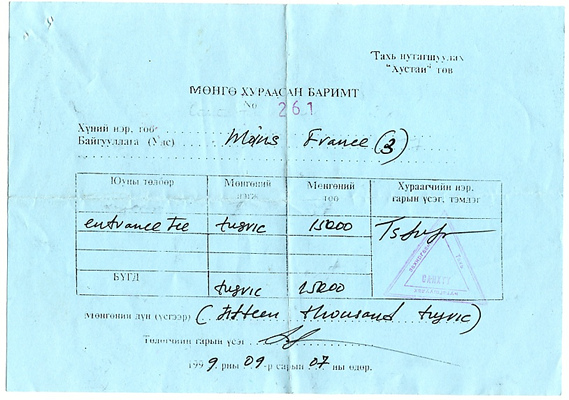 Тахь нутагшуулах
"Хустай" төв
МӨНГӨ ХУРААСАН БАРИМТ
№ 261
Хүний нэр, гоо
Байгууллага (Улс) France (3)
Юуны төлөөр Мөнгөний нэгж Мөнгөний тоо Хураагчийн нэр, гарын үсэг, тэмдэг
entrance fee tugric 15000
БҮГД tugric 15000
Мөнгөний дүн (үсгээр) (fifteen thousand tugric)
Төлөгчийн гарын үсэг
1999. рны 09-р сарын 07 ны өдөр.